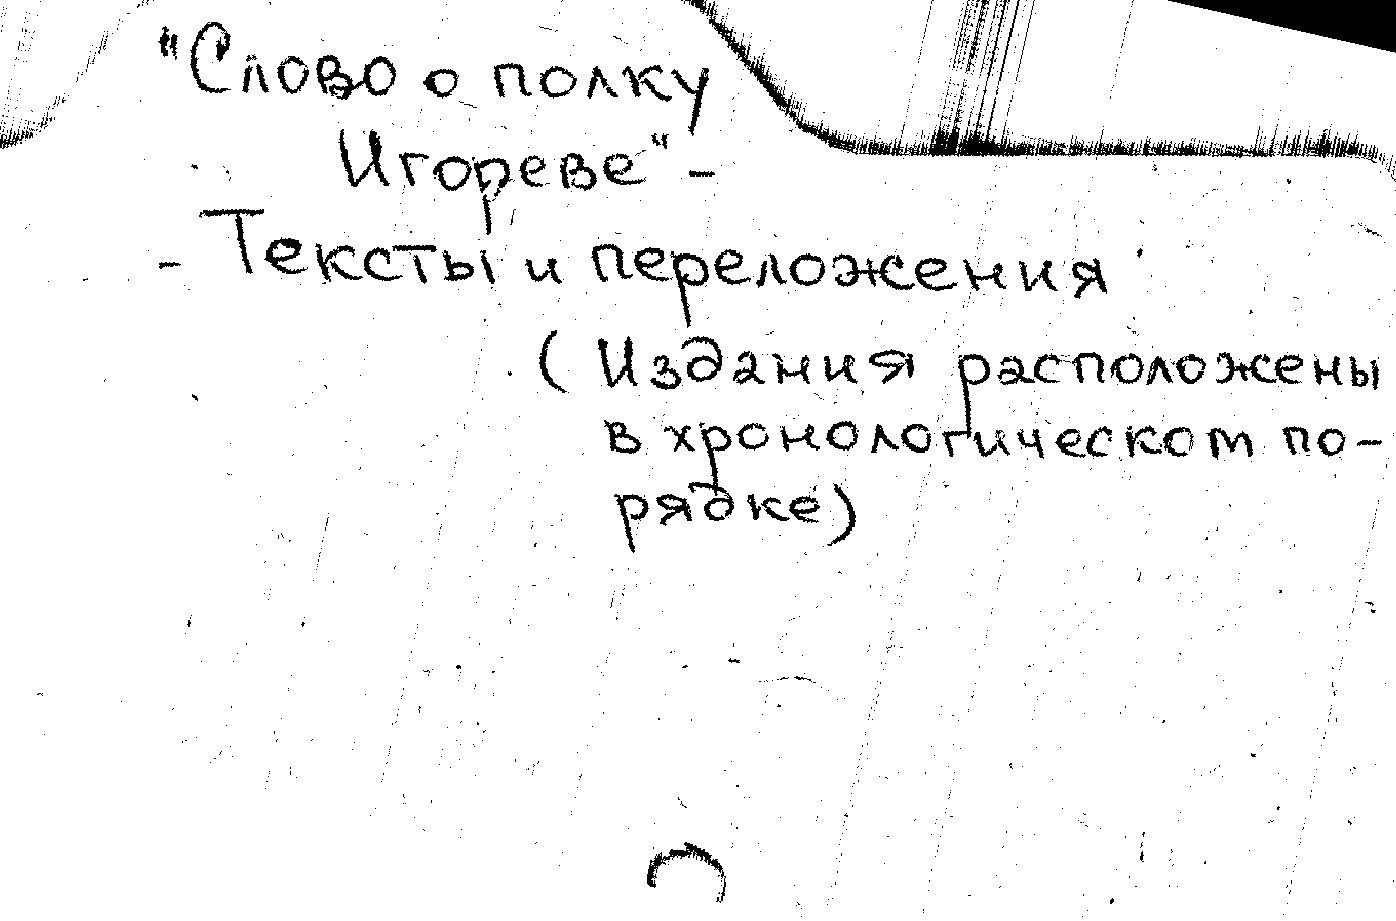 "Слово о полку
Игореве" -
- Тексты и переложения
(Издания расположены
в хронологическом по-
рядке)